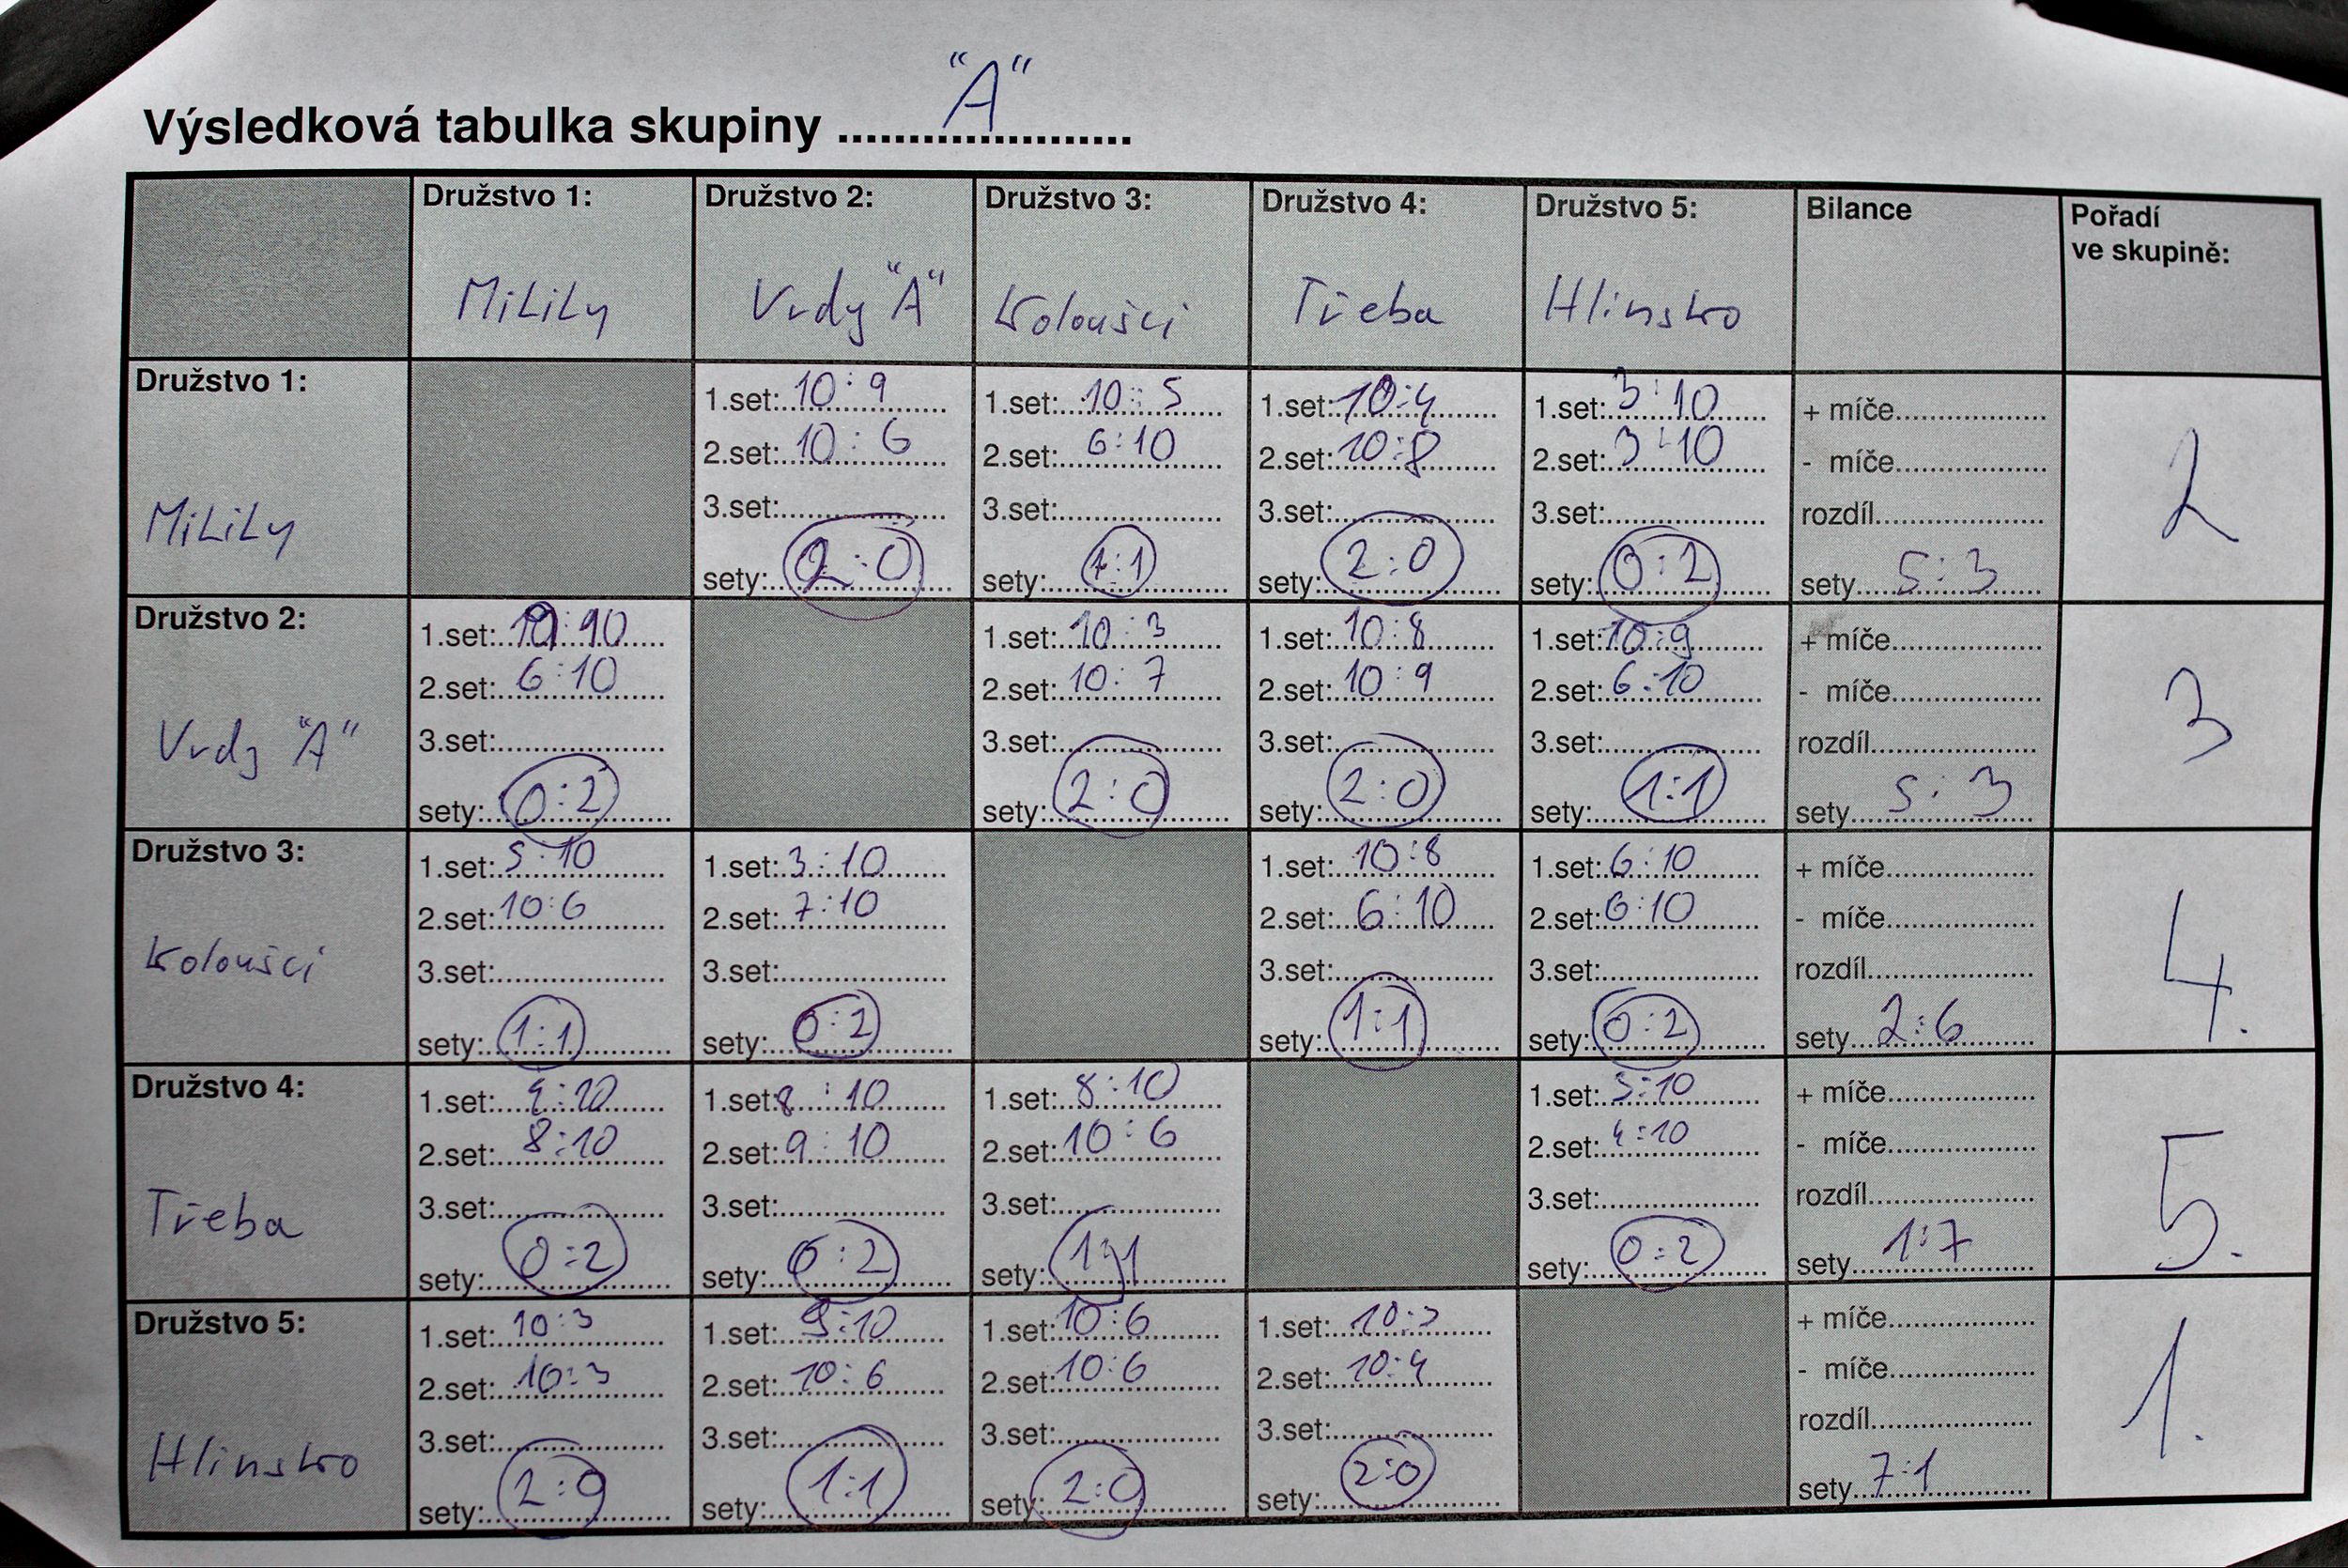 Výsledková tabulka skupiny ...................... "A"
Družstvo 1: Družstvo 2: Družstvo 3: Družstvo 4: Družstvo 5: Bilance Pořadí
ve skupině:
MiLiLy Vrdy "A" Koloušci Třeba Hlinsko
Družstvo 1:
MiLiLy
1.set: 10:9
2.set: 10:6
3.set:
sety: 2:0
1.set: 10:5
2.set: 6:10
3.set:
sety: 1:1
1.set: 10:4
2.set: 10:8
3.set:
sety: 2:0
1.set: 3:10
2.set: 3:10
3.set:
sety: 0:2
+ míče
- míče
rozdíl
sety 5:3
2
Družstvo 2:
Vrdy "A"
1.set: 9:10
2.set: 6:10
3.set:
sety: 0:2
1.set: 10:3
2.set: 10:7
3.set:
sety: 2:0
1.set: 10:8
2.set: 10:9
3.set:
sety: 2:0
1.set: 10:9
2.set: 6:10
3.set:
sety: 1:1
+ míče
- míče
rozdíl
sety 5:3
3
Družstvo 3:
Koloušci
1.set: 5:10
2.set: 10:6
3.set:
sety: 1:1
1.set: 3:10
2.set: 7:10
3.set:
sety: 0:2
1.set: 10:8
2.set: 6:10
3.set:
sety: 1:1
1.set: 6:10
2.set: 6:10
3.set:
sety: 0:2
+ míče
- míče
rozdíl
sety 2:6
4.
Družstvo 4:
Třeba
1.set: 4:10
2.set: 8:10
3.set:
sety: 0:2
1.set: 8:10
2.set: 9:10
3.set:
sety: 0:2
1.set: 8:10
2.set: 10:6
3.set:
sety: 1:1
1.set: 3:10
2.set: 4:10
3.set:
sety: 0:2
+ míče
- míče
rozdíl
sety 1:7
5.
Družstvo 5:
Hlinsko
1.set: 10:3
2.set: 10:3
3.set:
sety: 2:0
1.set: 9:10
2.set: 10:6
3.set:
sety: 1:1
1.set: 10:6
2.set: 10:6
3.set:
sety: 2:0
1.set: 10:3
2.set: 10:4
3.set:
sety: 2:0
+ míče
- míče
rozdíl
sety 7:1
1.